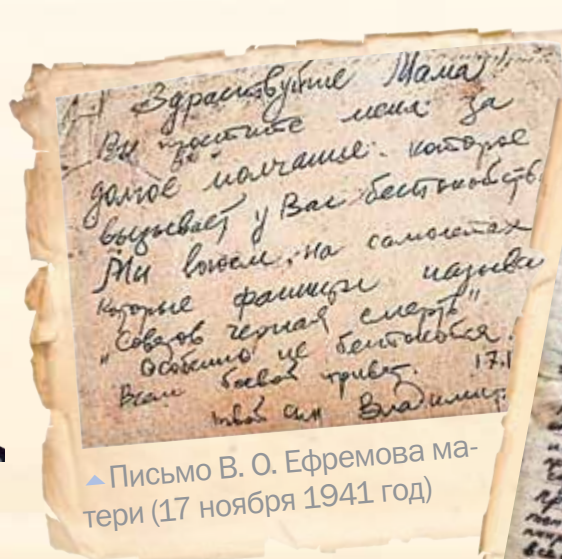 Здраствуйте Мама!
Вы простите меня за
долгое молчание. которое
вызывает у Вас беспокойств
Мы воюем, на самолетах
которые фашисты называ
"Советов черная смерть"
Особенно не беспокойся.
Всем боевой привет. 17.1
твой сын Владимир.
Письмо В. О. Ефремова ма-
тери (17 ноября 1941 год)